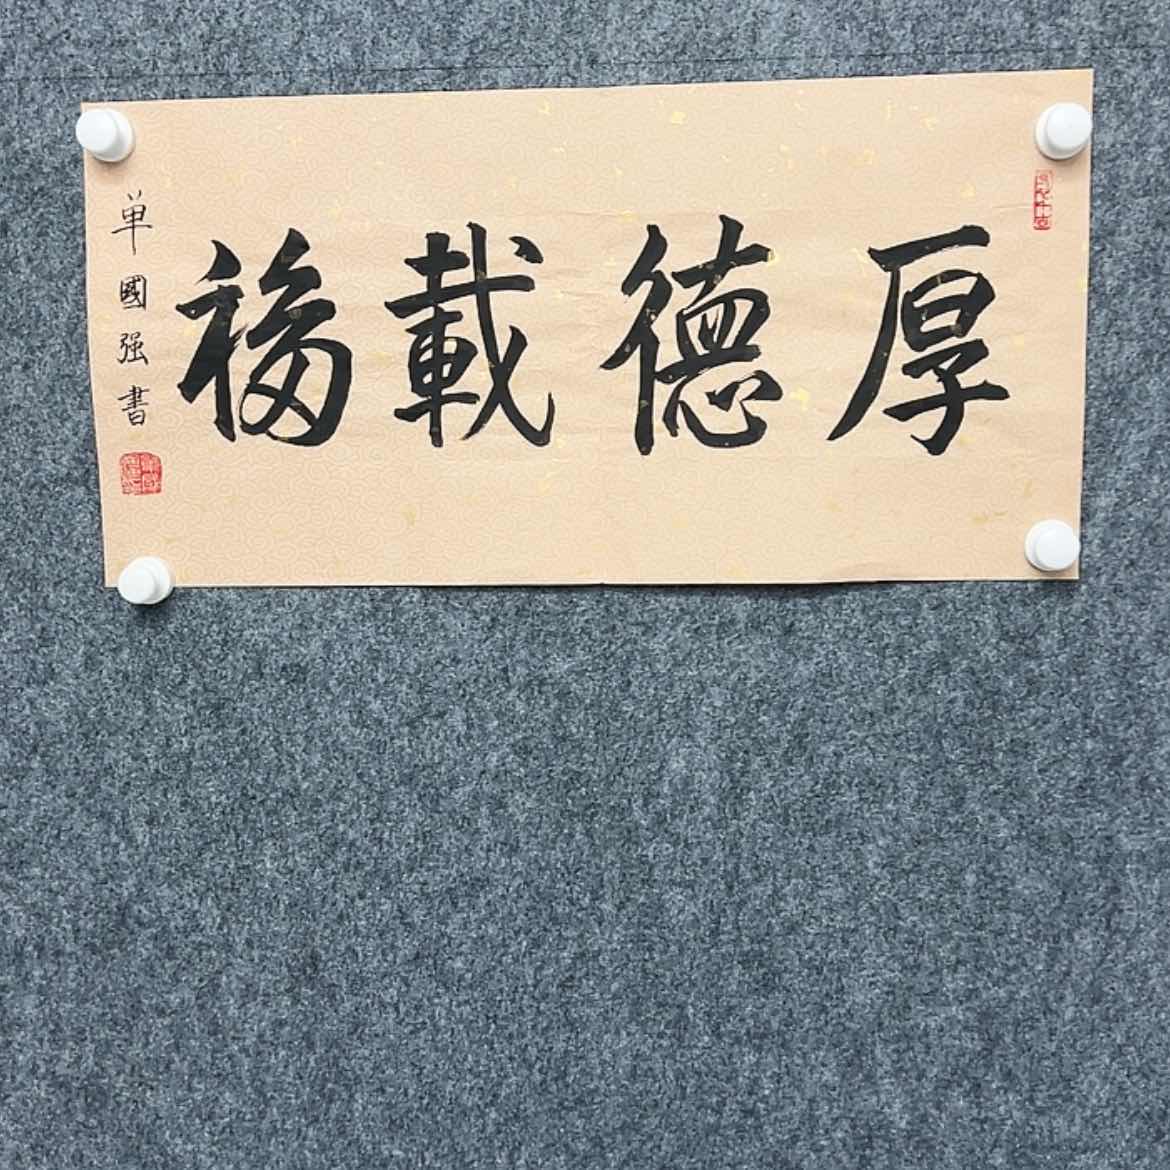 厚德載福
单國强書